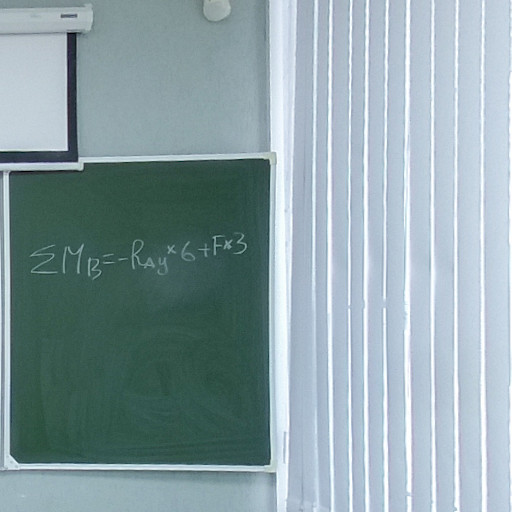 ΣM_B=-R_Ay*6+F*3